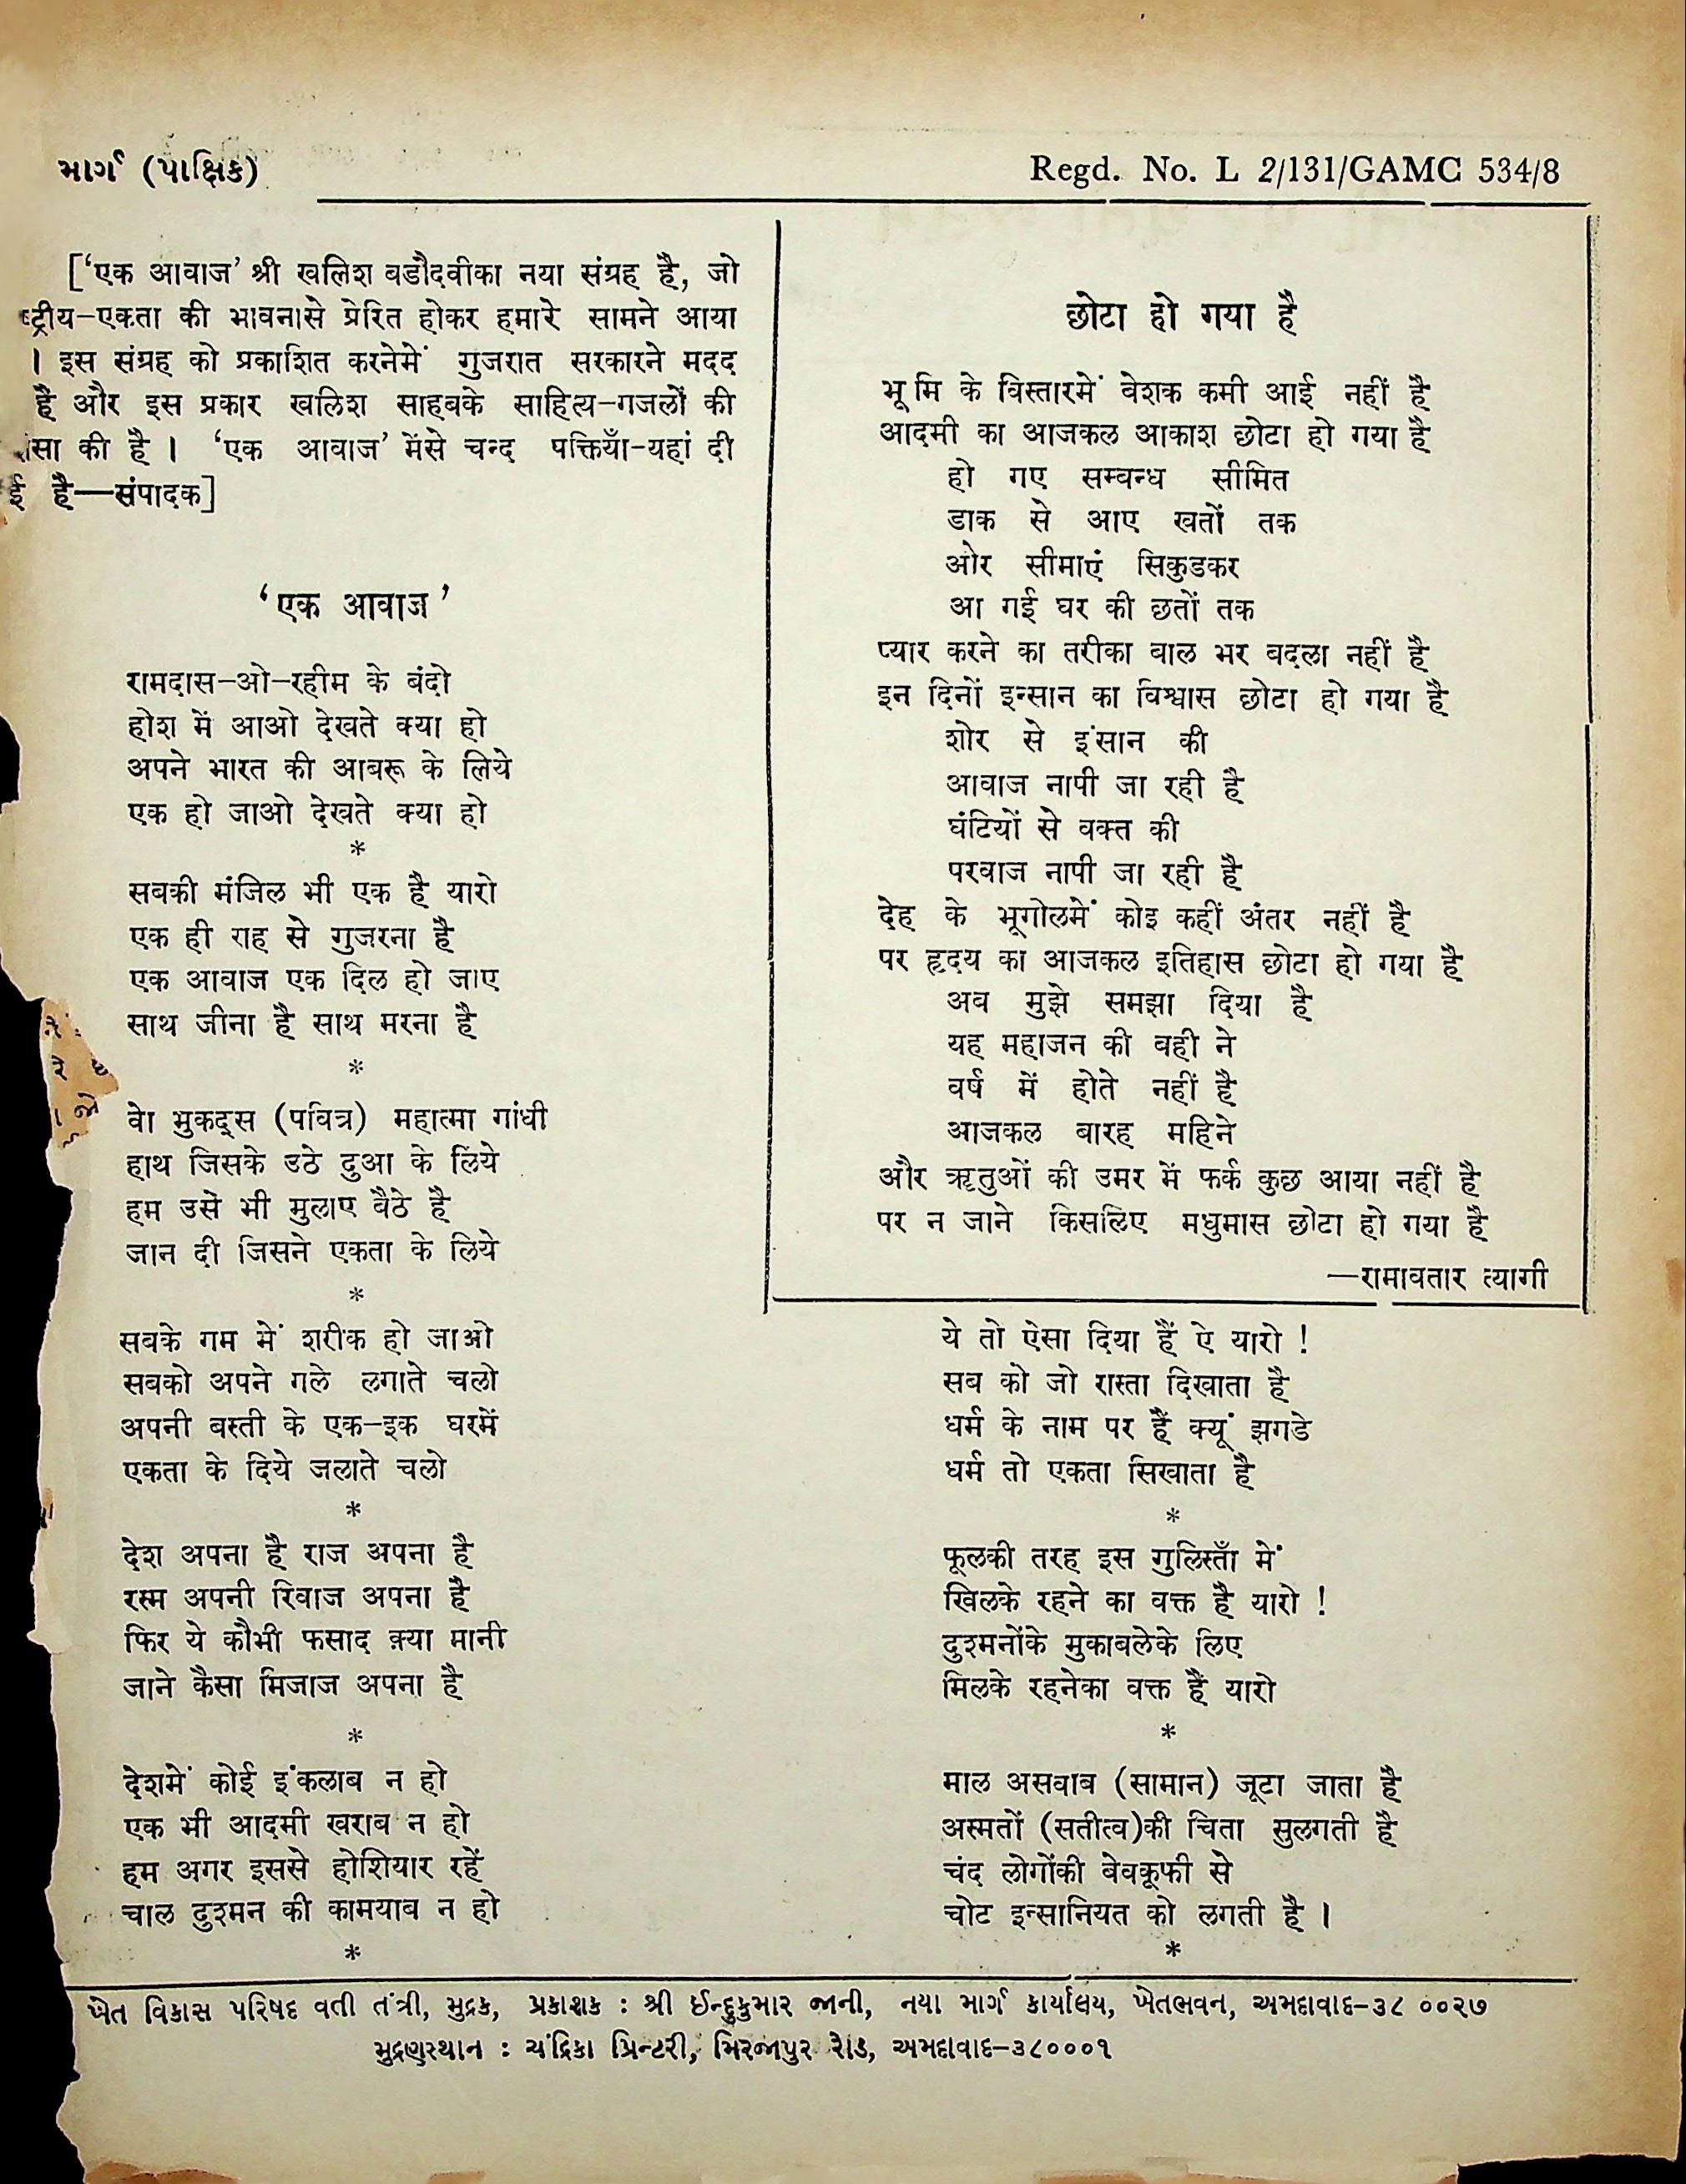 માર્ગ (પાક્ષિક)
Regd. No. L 2/131/GAMC 534/8
['एक आवाज' श्री खलिश बडौदवीका नया संग्रह है, जो
ष्ट्रीय-एकता की भावनासे प्रेरित होकर हमारे सामने आया
। इस संग्रह को प्रकाशित करनेमें गुजरात सरकारने मदद
है और इस प्रकार खलिश साहबके साहित्य-गजलों की
सा की है । 'एक आवाज' मेंसे चन्द पक्तियाँ-यहां दी
ई है—संपादक]
'एक आवाज'
रामदास-ओ-रहीम के बंदो
होश में आओ देखते क्या हो
अपने भारत की आबरू के लिये
एक हो जाओ देखते क्या हो
*
सबकी मंजिल भी एक है यारो
एक ही राह से गुजरना है
एक आवाज एक दिल हो जाए
साथ जीना है साथ मरना है
*
वेा मुकद्स (पवित्र) महात्मा गांधी
हाथ जिसके उठे दुआ के लिये
हम उसे भी मुलाए बैठे है
जान दी जिसने एकता के लिये
*
सबके गम में शरीक हो जाओ
सबको अपने गले लगाते चलो
अपनी बस्ती के एक-इक घरमें
एकता के दिये जलाते चलो
*
देश अपना है राज अपना है
रस्म अपनी रिवाज अपना है
फिर ये कौभी फसाद क्या मानी
जाने कैसा मिजाज अपना है
*
देशमें कोई इंकलाब न हो
एक भी आदमी खराब न हो
हम अगर इससे होशियार रहें
चाल दुश्मन की कामयाब न हो
*
छोटा हो गया है
भूमि के विस्तारमें बेशक कमी आई नहीं है
आदमी का आजकल आकाश छोटा हो गया है
हो गए सम्बन्ध सीमित
डाक से आए खतों तक
ओर सीमाएं सिकुडकर
आ गई घर की छतों तक
प्यार करने का तरीका बाल भर बदला नहीं है
इन दिनों इन्सान का विश्वास छोटा हो गया है
शोर से इंसान की
आवाज नापी जा रही है
घंटियों से वक्त की
परवाज नापी जा रही है
देह के भूगोलमें कोइ कहीं अंतर नहीं है
पर हृदय का आजकल इतिहास छोटा हो गया है
अब मुझे समझा दिया है
यह महाजन की बही ने
वर्ष में होते नहीं है
आजकल बारह महिने
और ऋतुओं की उमर में फर्क कुछ आया नहीं है
पर न जाने किसलिए मधुमास छोटा हो गया है
—रामावतार त्यागी
ये तो ऐसा दिया हैं ऐ यारो !
सब को जो रास्ता दिखाता है
धर्म के नाम पर हैं क्यूं झगडे
धर्म तो एकता सिखाता है
*
फूलकी तरह इस गुलिस्ताँ में
खिलके रहने का वक्त है यारो !
दुश्मनोंके मुकाबलेके लिए
मिलके रहनेका वक्त हैं यारो
*
माल असबाब (सामान) जूटा जाता है
अस्मतों (सतीत्व)की चिता सुलगती है
चंद लोगोंकी बेवकूफी से
चोट इन्सानियत को लगती है ।
*
ખેત વિકાસ પરિષદ વતી તંત્રી, મુદ્રક, પ્રકાશક : શ્રી ઈન્દુકુમાર જાની, નયા માર્ગ કાર્યાલય, ખેતભવન, અમદાવાદ-૩૮ ૦૦૨૭
મુદ્રણસ્થાન : ચંદ્રિકા પ્રિન્ટરી, મિરજાપુર રોડ, અમદાવાદ-૩૮૦૦૦૧